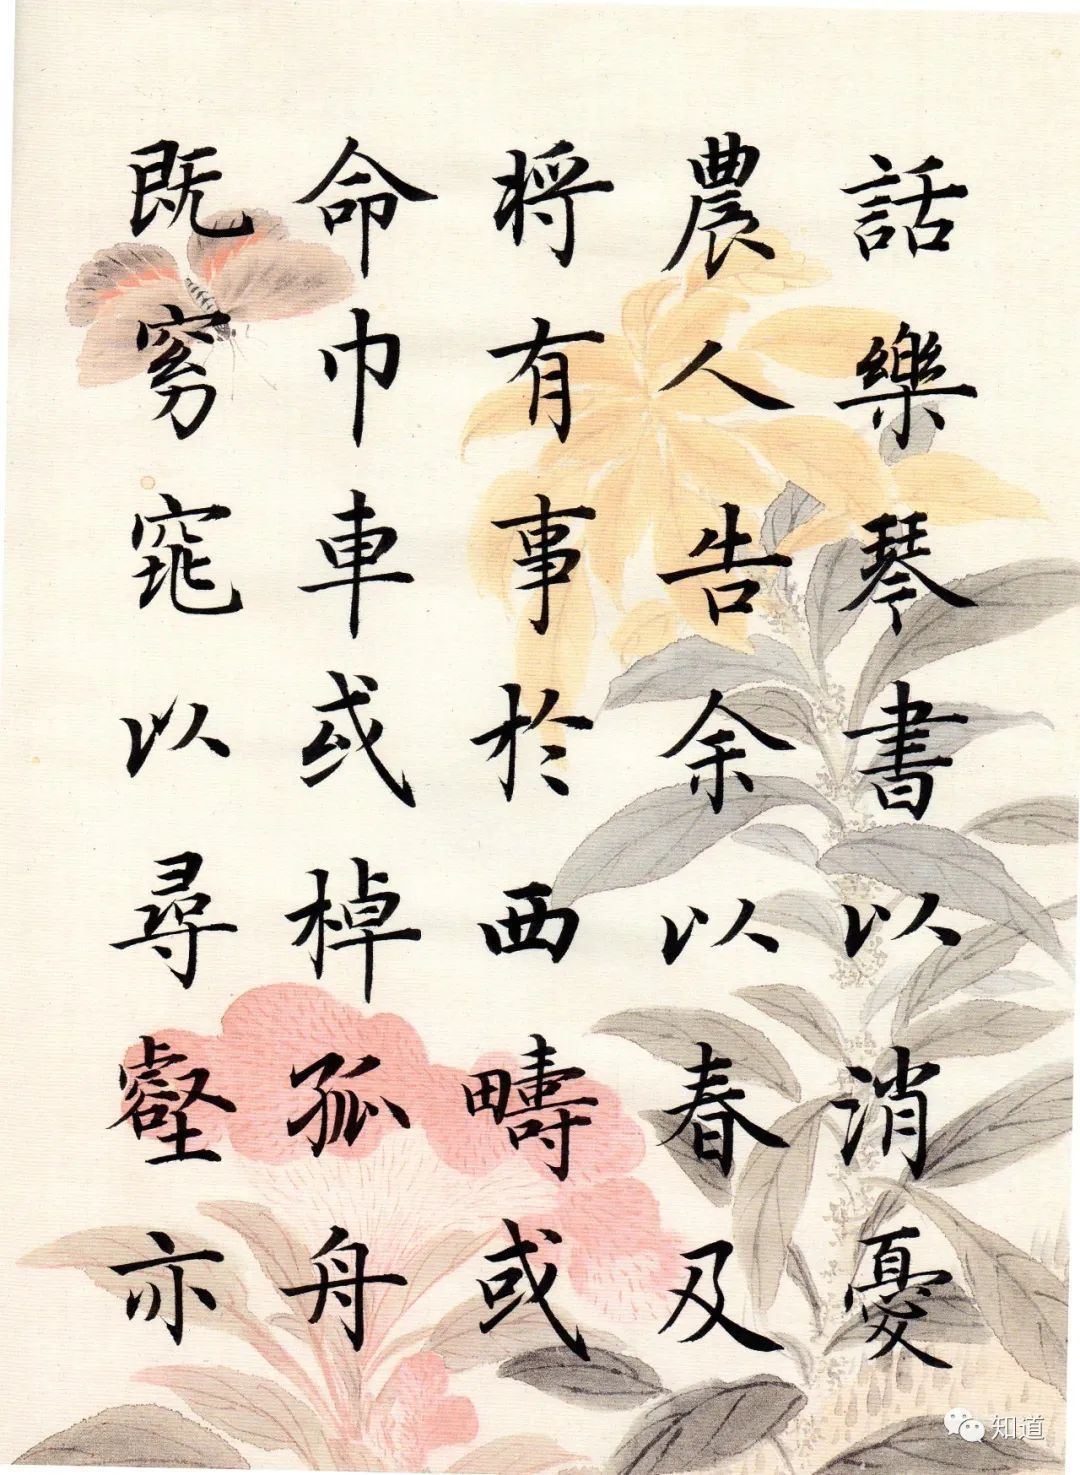 話樂琴書以消憂
農人告余以春及
将有事於西疇或
命巾車或棹孤舟
既窮窕以尋壑亦
知道